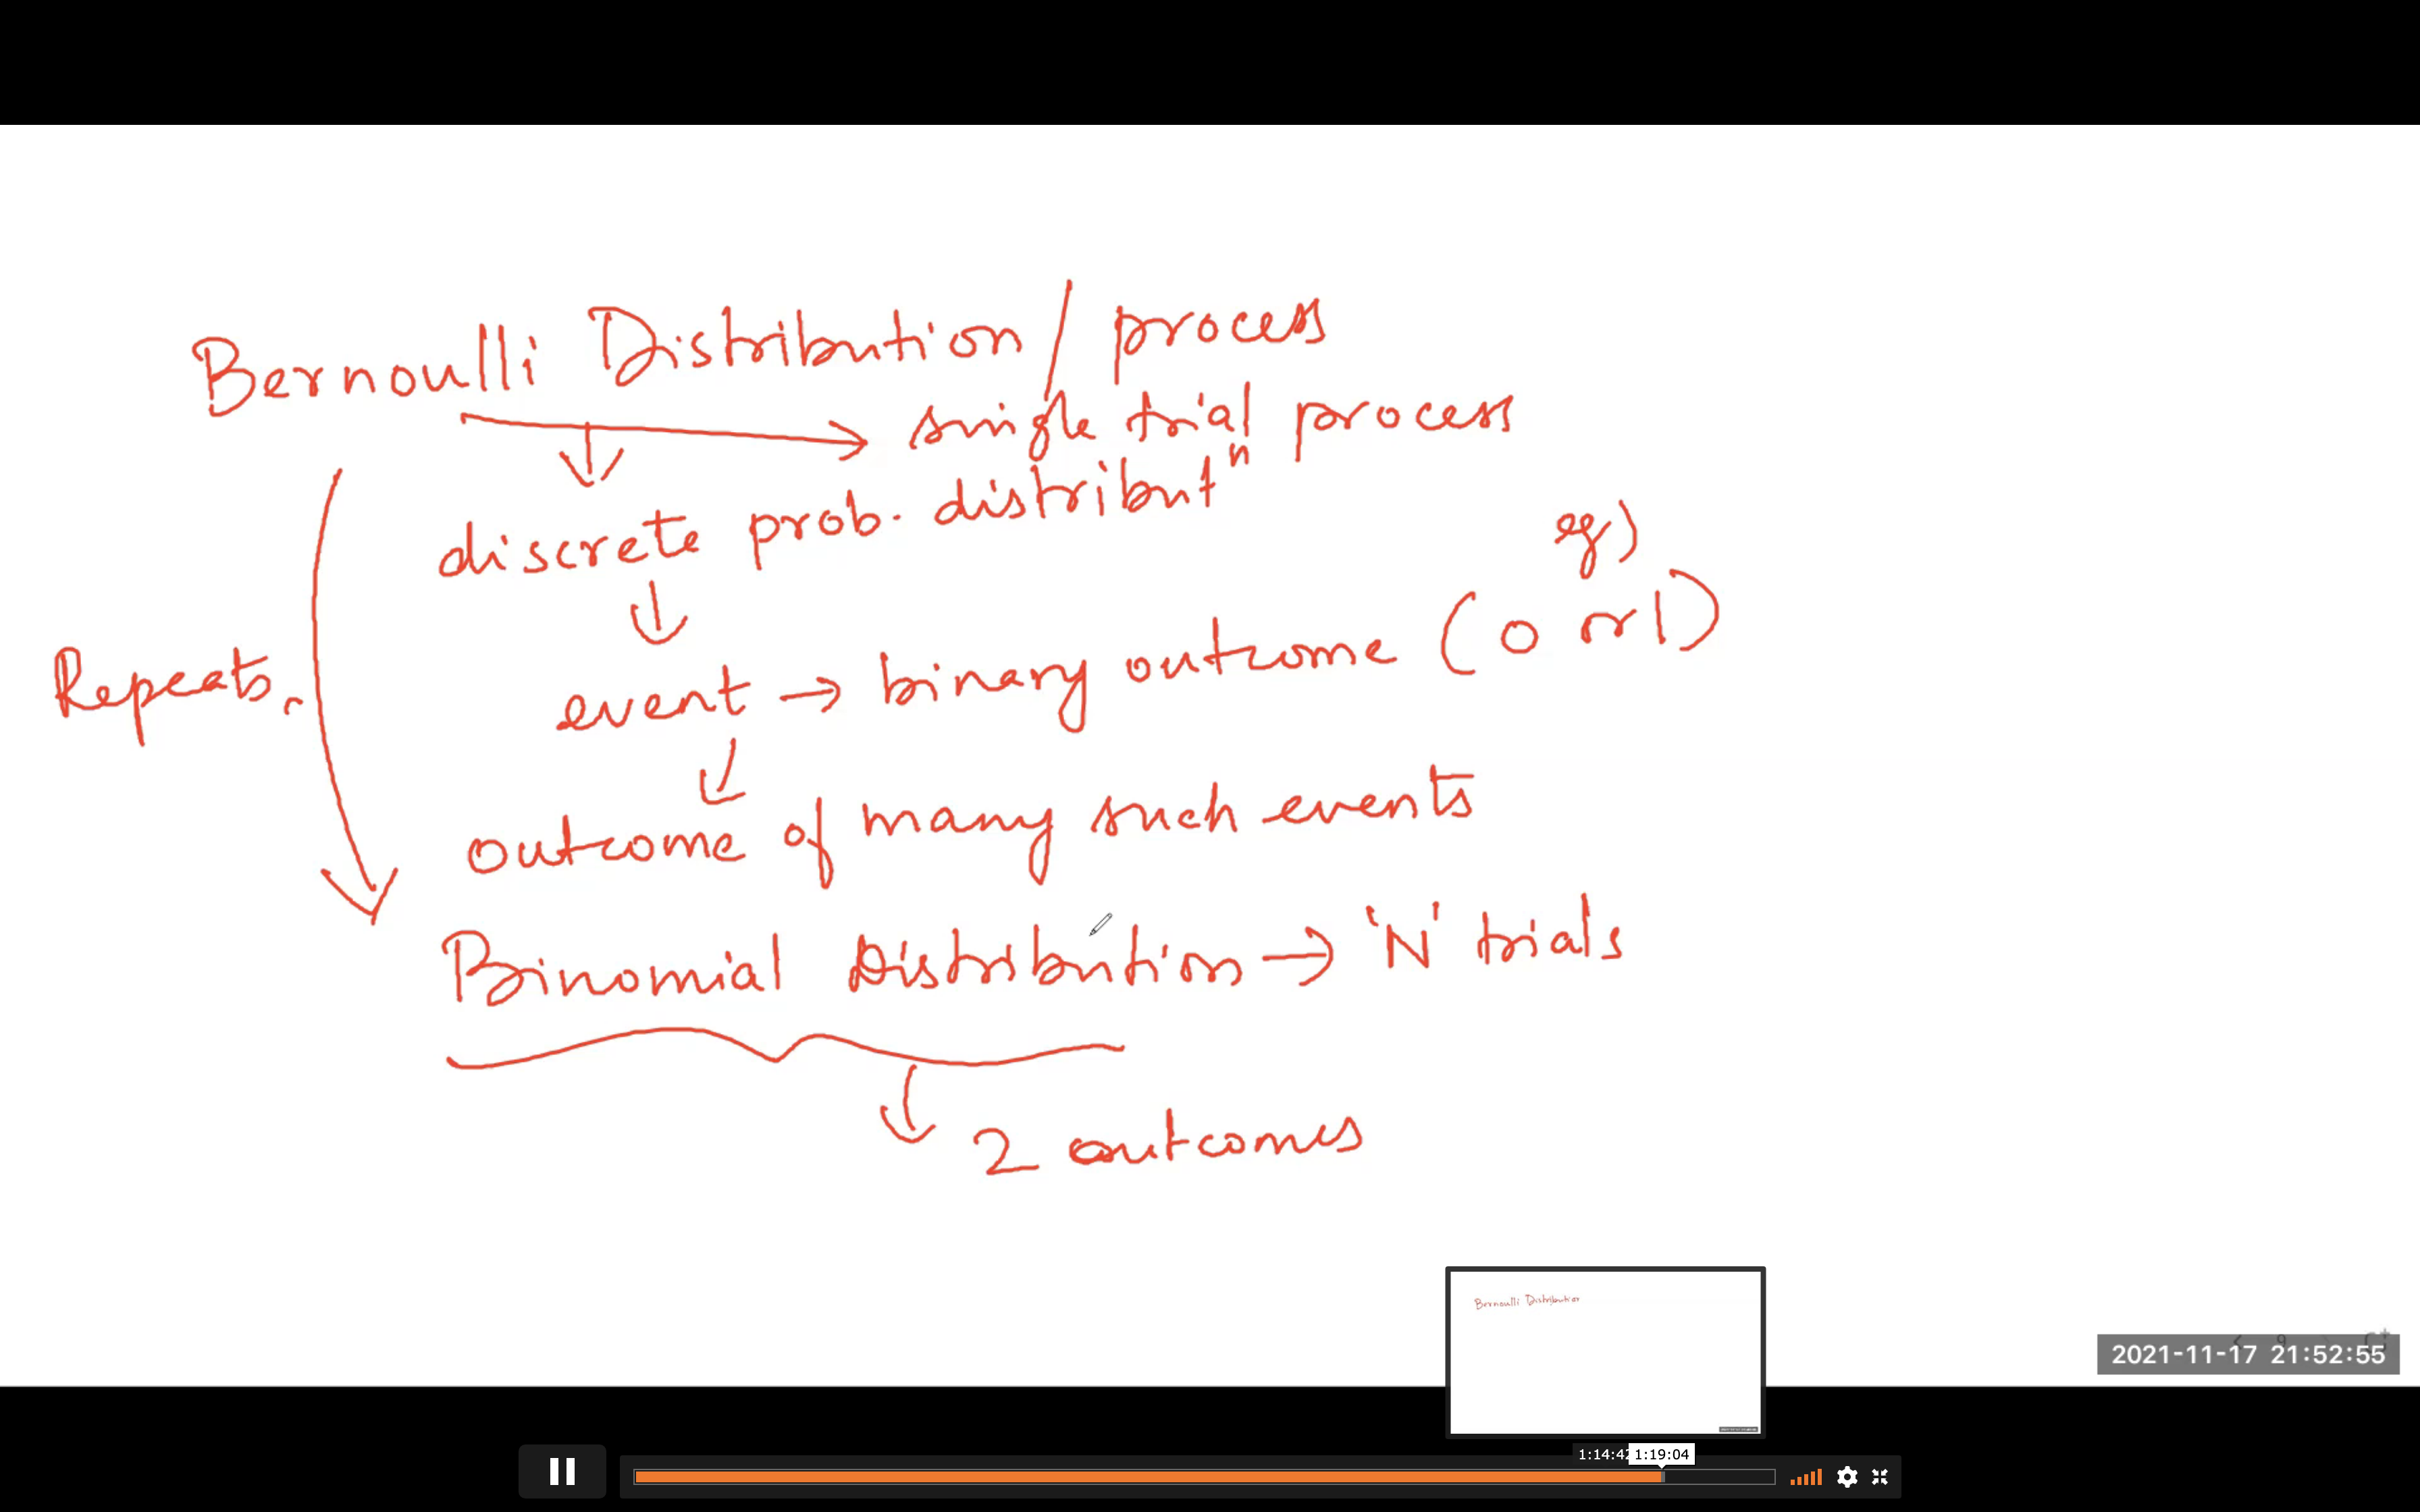 Bernoulli Distribution / process
single trial process
discrete prob. distributⁿ
eg)
event → binary outcome (0 or 1)
Repeats.
outcome of many such events
Binomial Distribution → 'N' trials
2 outcomes
Bernoulli Distribution
2021-11-17 21:52:55
1:19:04